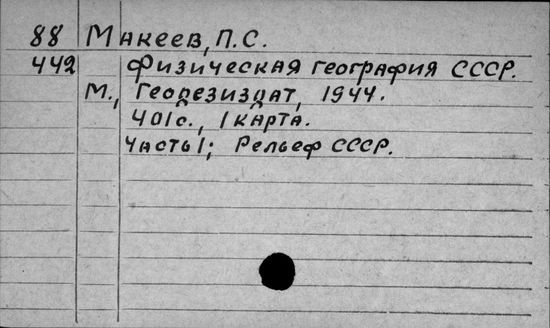 88 Макеев, П.С.
442 Физическая география СССР.
М., Геодезиздат, 1944.
401с., 1 карта.
Часть 1; Рельеф СССР.